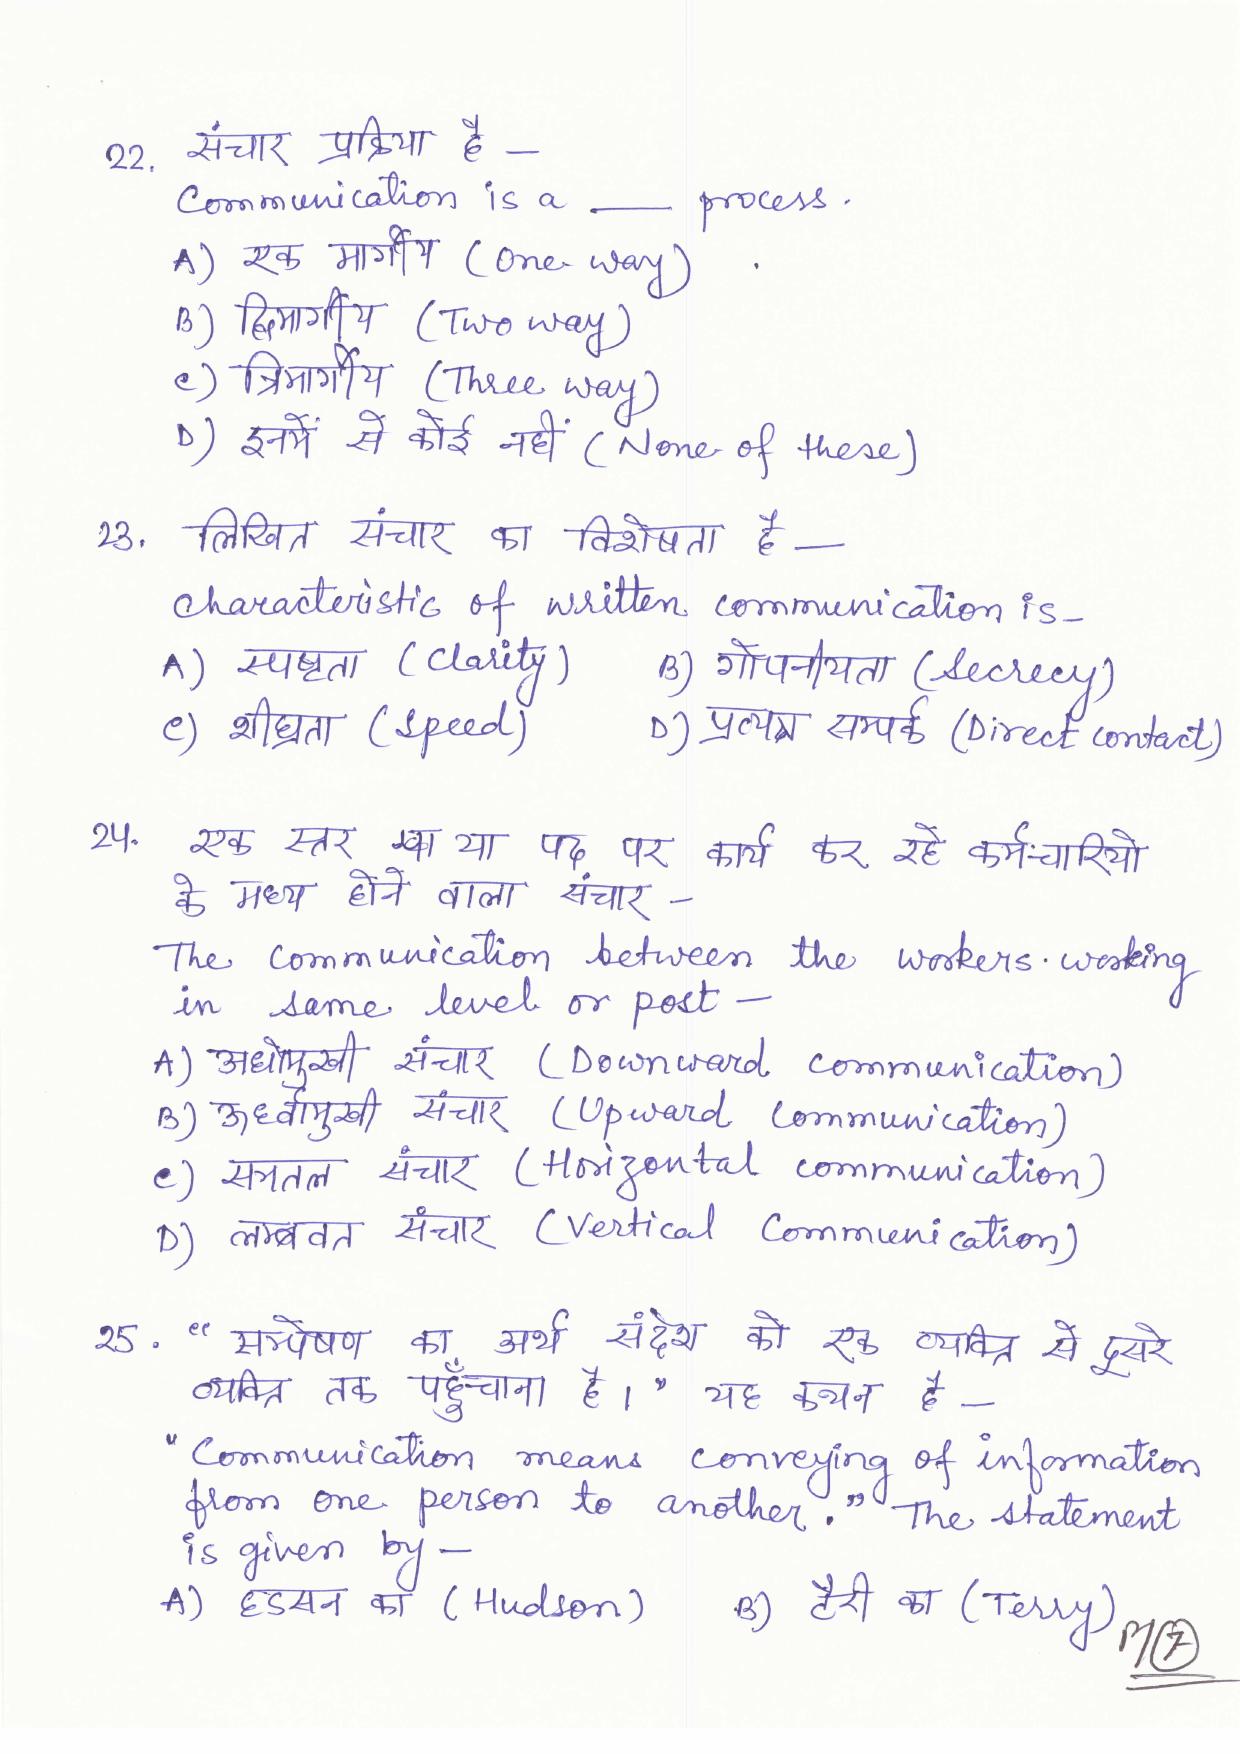 22. संचार प्रक्रिया है —
Communication is a ___ process.
A) एक मार्गीय (One way)
B) द्विमार्गीय (Two way)
C) त्रिमार्गीय (Three way)
D) इनमें से कोई नहीं (None of these)
23. लिखित संचार का विशेषता है —
Characteristic of written communication is -
A) स्पष्टता (Clarity) B) गोपनीयता (Secrecy)
C) शीघ्रता (Speed) D) प्रत्यक्ष सम्पर्क (Direct contact)
24. एक स्तर या पद पर कार्य कर रहे कर्मचारियो
के मध्य होने वाला संचार -
The communication between the workers working
in same level or post —
A) अधोमुखी संचार (Downward communication)
B) ऊर्ध्वामुखी संचार (Upward Communication)
C) समतल संचार (Horizontal communication)
D) लम्बवत संचार (Vertical Communication)
25. "सम्प्रेषण का अर्थ संदेश को एक व्यक्ति से दूसरे
व्यक्ति तक पहुँचाना है।" यह कथन है —
"Communication means conveying of information
from one person to another." The statement
is given by —
A) हडसन का (Hudson) B) टैरी का (Terry)